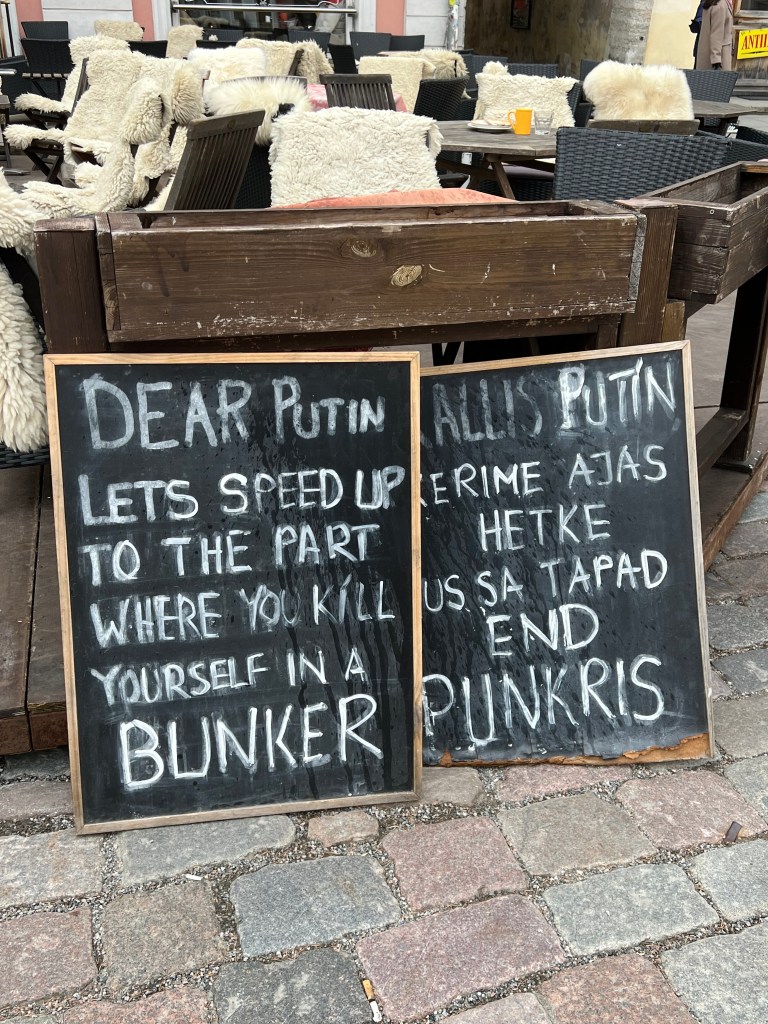 DEAR PUTIN
LETS SPEED UP
TO THE PART
WHERE YOU KILL
YOURSELF IN A
BUNKER
KALLIS PUTIN
KERIME AJAS
HETKE
US SA TAPAD
END
PUNKRIS
ANTII